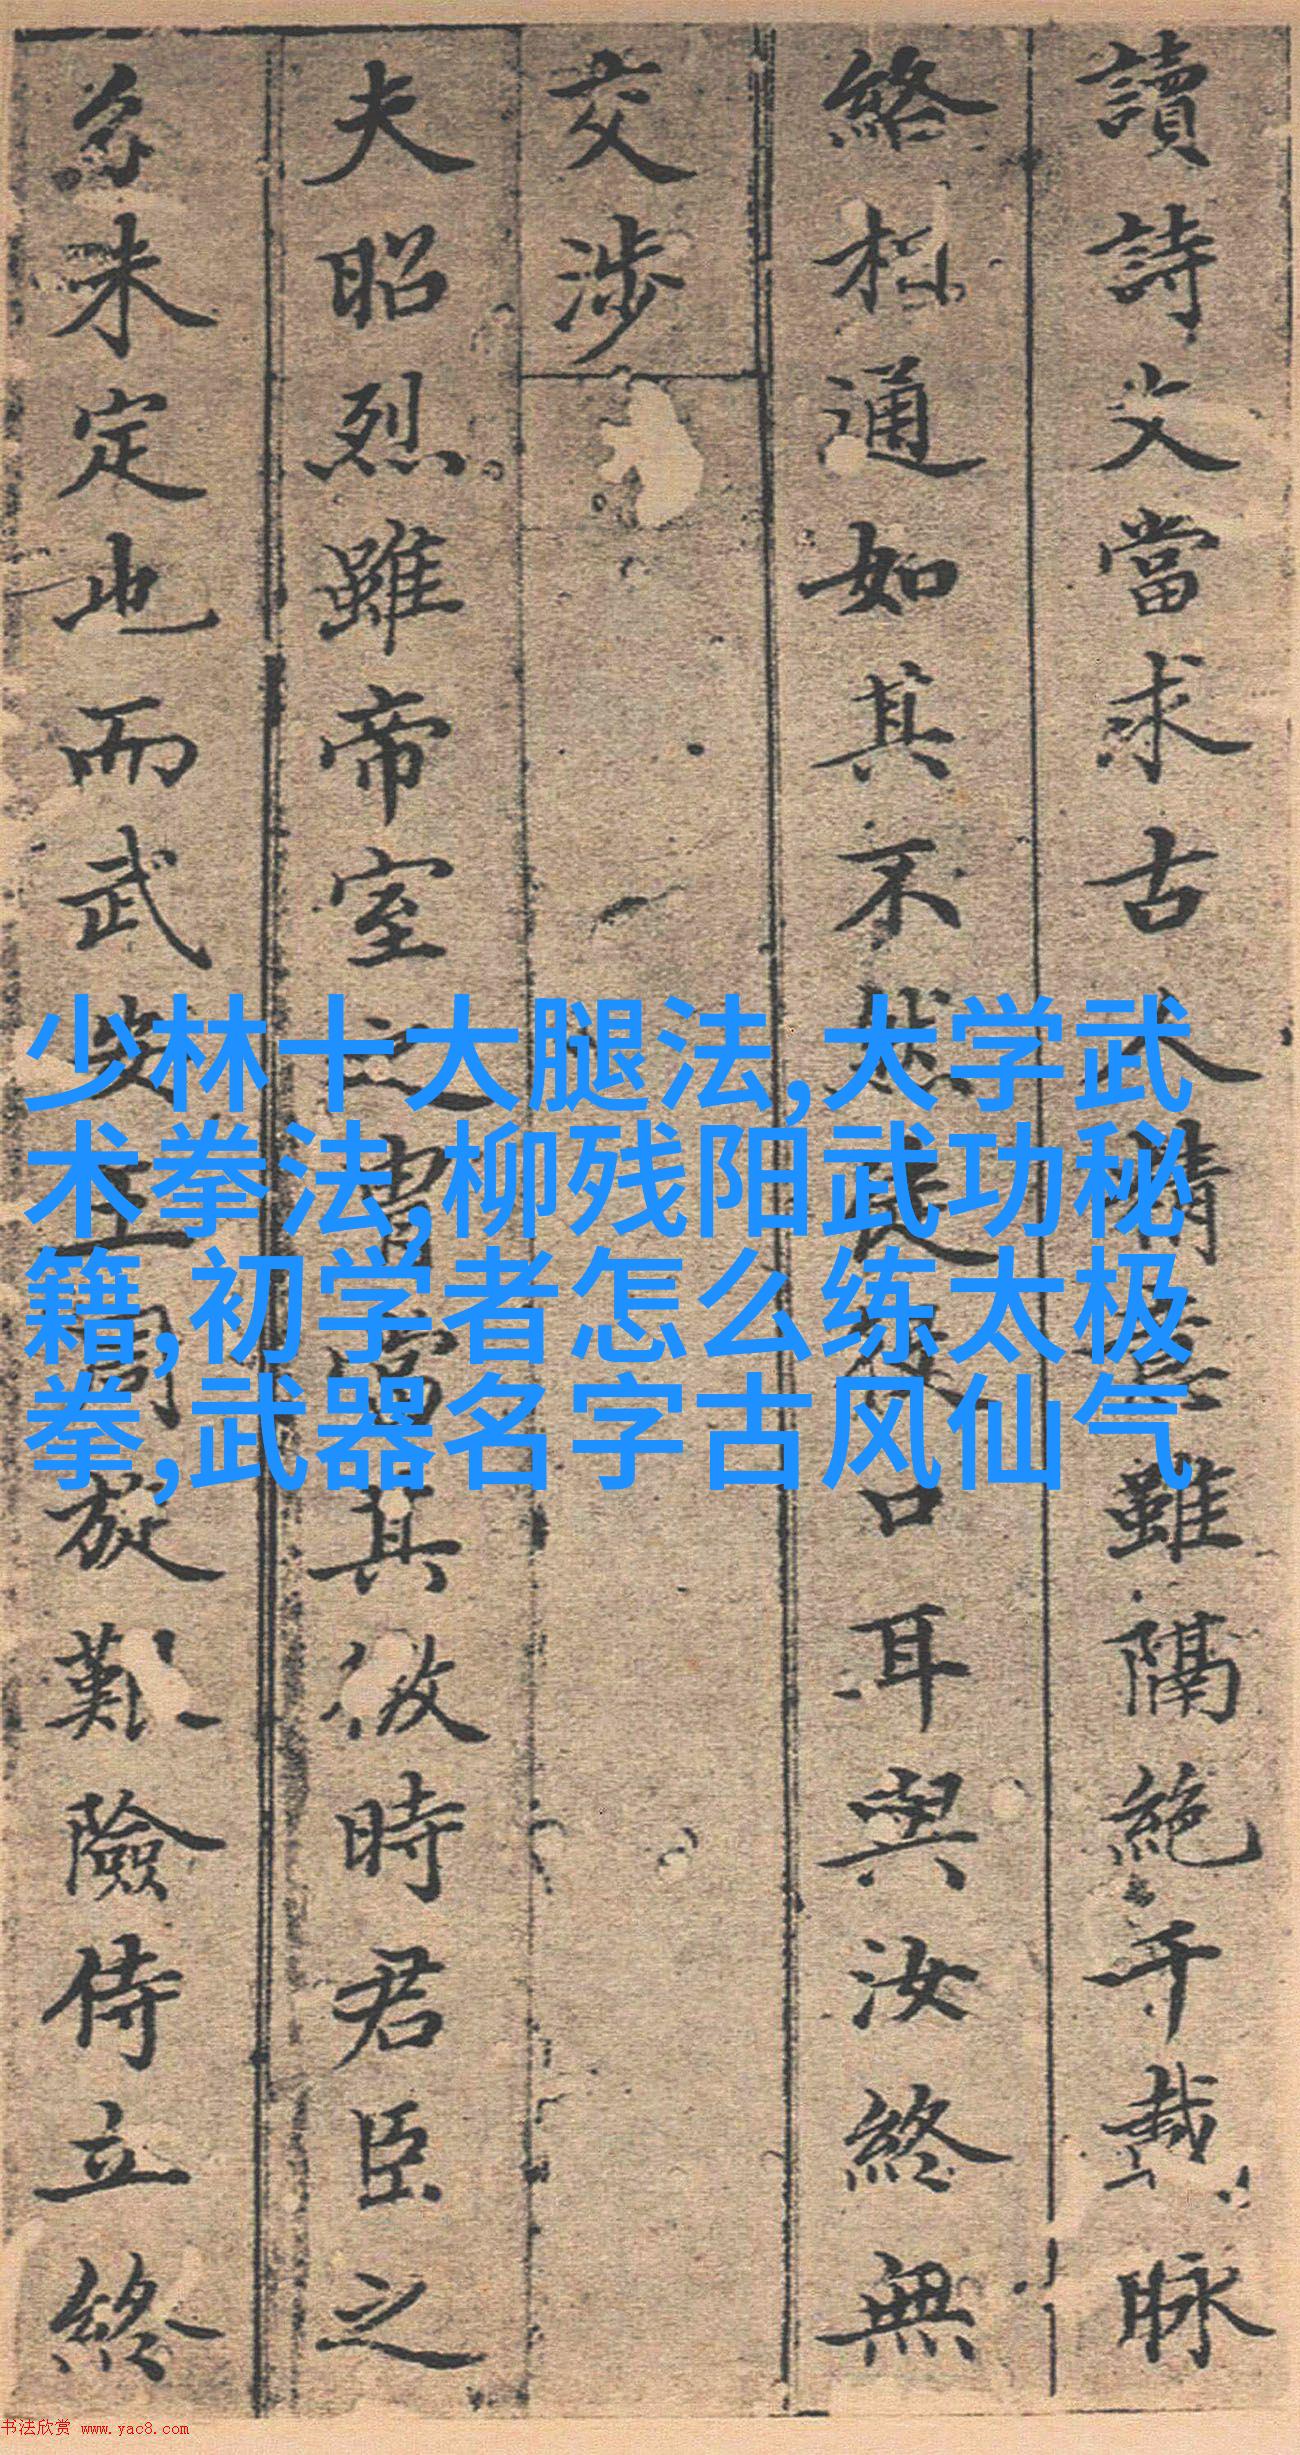 讀詩文當求古人情意雖隔絶千載脉
絡相通如其不然長歌口耳與汝終無
交涉
夫昭烈雖帝室之胄當其微時君臣之
分未定也而武安王周旋艱險侍立終
少林十大腿法,大学武
术拳法,柳残阳武功秘
籍,初学者怎么练太极
拳,武器名字古风仙气
书法欣赏 www.yac8.com